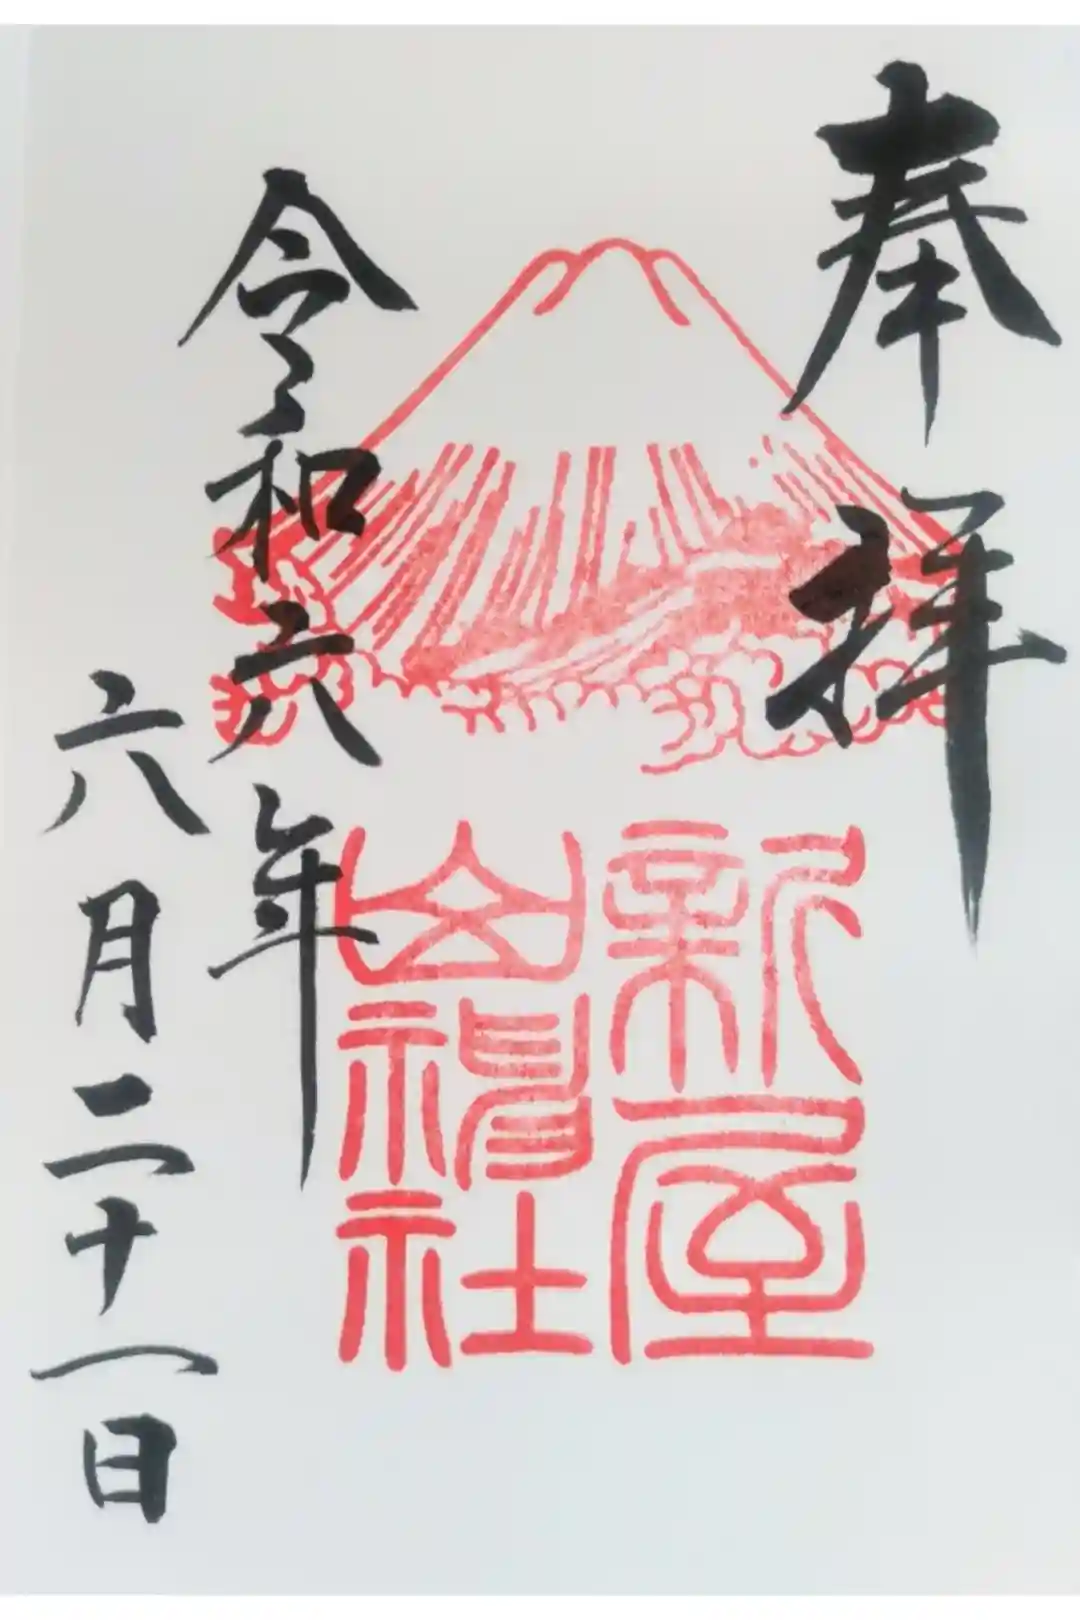 奉拝
新屋
山神社
令和六年
六月二十一日